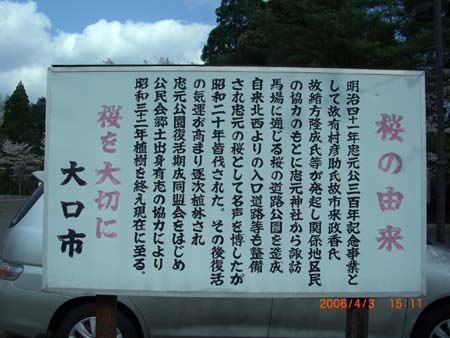 桜の由来
明治四十一年忠元公三百年記念事業と
して故有村彦助氏故市来政香氏
故緒方隆成氏等が発起し関係地区民
の協力のもとに忠元神社から諏訪
馬場に通じる桜の道路公園を造成
自来北西よりの入口道路等も整備
され忠元の桜として名声を博したが
昭和二十年皆伐された。その後復活
の気運が高まり逐次植林され
忠元公園復活期成同盟会をはじめ
公民会郷土出身有志の協力により
昭和三十二年植樹を終え現在に至る。
桜を大切に
大口市
2006/4/3 15:11